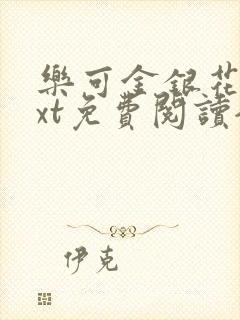 樂可金銀花
xt免費閱讀
伊克